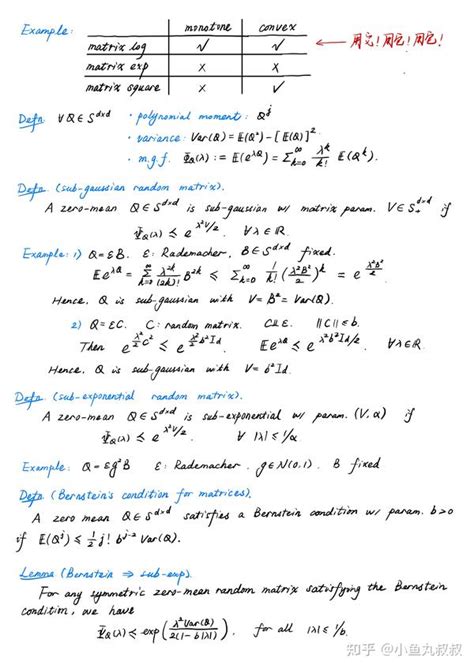 Example: monotone convex
matrix log ✓ ✓ ← 用它!用它!用它!
matrix exp × ×
matrix square × ✓
Defn. ∀Q∈S^{d×d} · polynomial moment: Q^j
· variance: Var(Q) = E(Q²) - [E(Q)]².
· m.g.f. Ψ_Q(λ) := E(e^{λQ}) = Σ_{k=0}^∞ λ^k/k! E(Q^k).
Defn. (sub-gaussian random matrix).
A zero-mean Q∈S^{d×d} is sub-gaussian w/ matrix param. V∈S_+^{d×d} if
Ψ_Q(λ) ≼ e^{λ²V/2}. ∀λ∈R.
Example: 1) Q=εB. ε: Rademacher, B∈S^{d×d} fixed.
E e^{λQ} = Σ_{k=0}^∞ λ^{2k}/(2k)! B^{2k} ≼ Σ_{k=0}^∞ 1/k! (λ²B²/2)^k = e^{λ²B²/2}.
Hence, Q is sub-gaussian with V=B²=Var(Q).
2) Q=εC. C: random matrix. C⫫ε. ‖C‖≤b.
Then e^{λ²/2 C²} ≼ e^{λ²/2 b² Id}. E e^{λQ} ≼ e^{λ²b²Id/2}. ∀λ∈R.
Hence, Q is sub-gaussian with V=b²Id.
Defn. (sub-exponential random matrix).
A zero-mean Q∈S^{d×d} is sub-exponential w/ param. (V,α) if
Ψ_Q(λ) ≼ e^{λ²V/2}. ∀ |λ|≤1/α
Example: Q=εg²B ε: Rademacher, g∈N(0,1). B fixed
Defn. (Bernstein's condition for matrices).
A zero mean Q∈S^{d×d} satisfies a Bernstein condition w/ param. b>0
if E(Q^j) ≼ ½ j! b^{j-2} Var(Q).
Lemma (Bernstein ⇒ sub-exp).
For any symmetric zero-mean random matrix satisfying the Bernstein
condition, we have
Ψ_Q(λ) ≼ exp(λ²Var(Q)/2(1-b|λ|)). for all |λ|≤1/b.
知乎 @小鱼丸叔叔